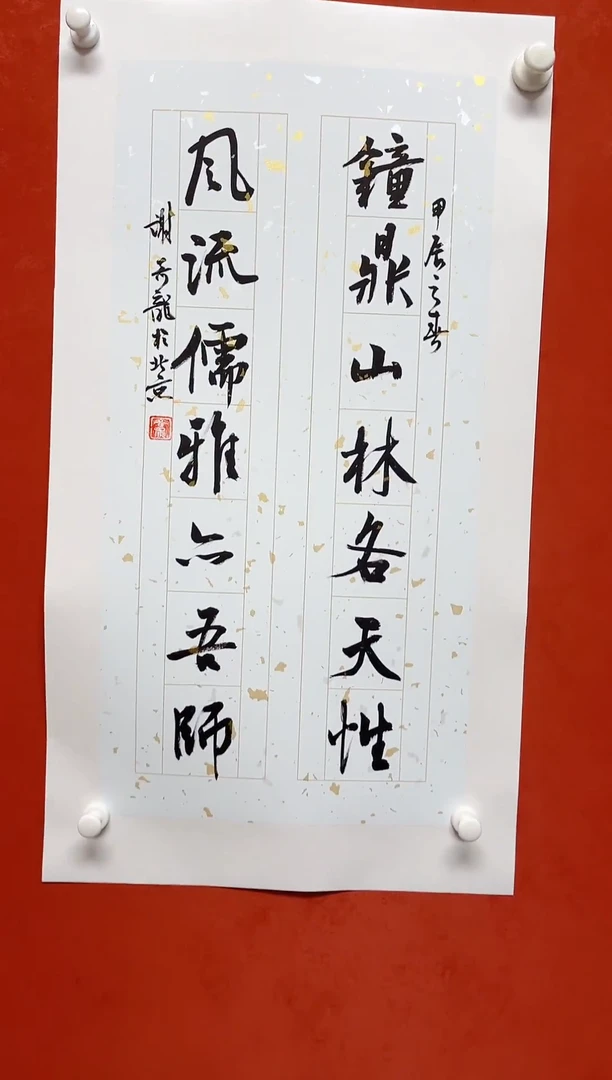 甲辰之春
鐘鼎山林各天性
风流儒雅亦吾師
謝龍於北京